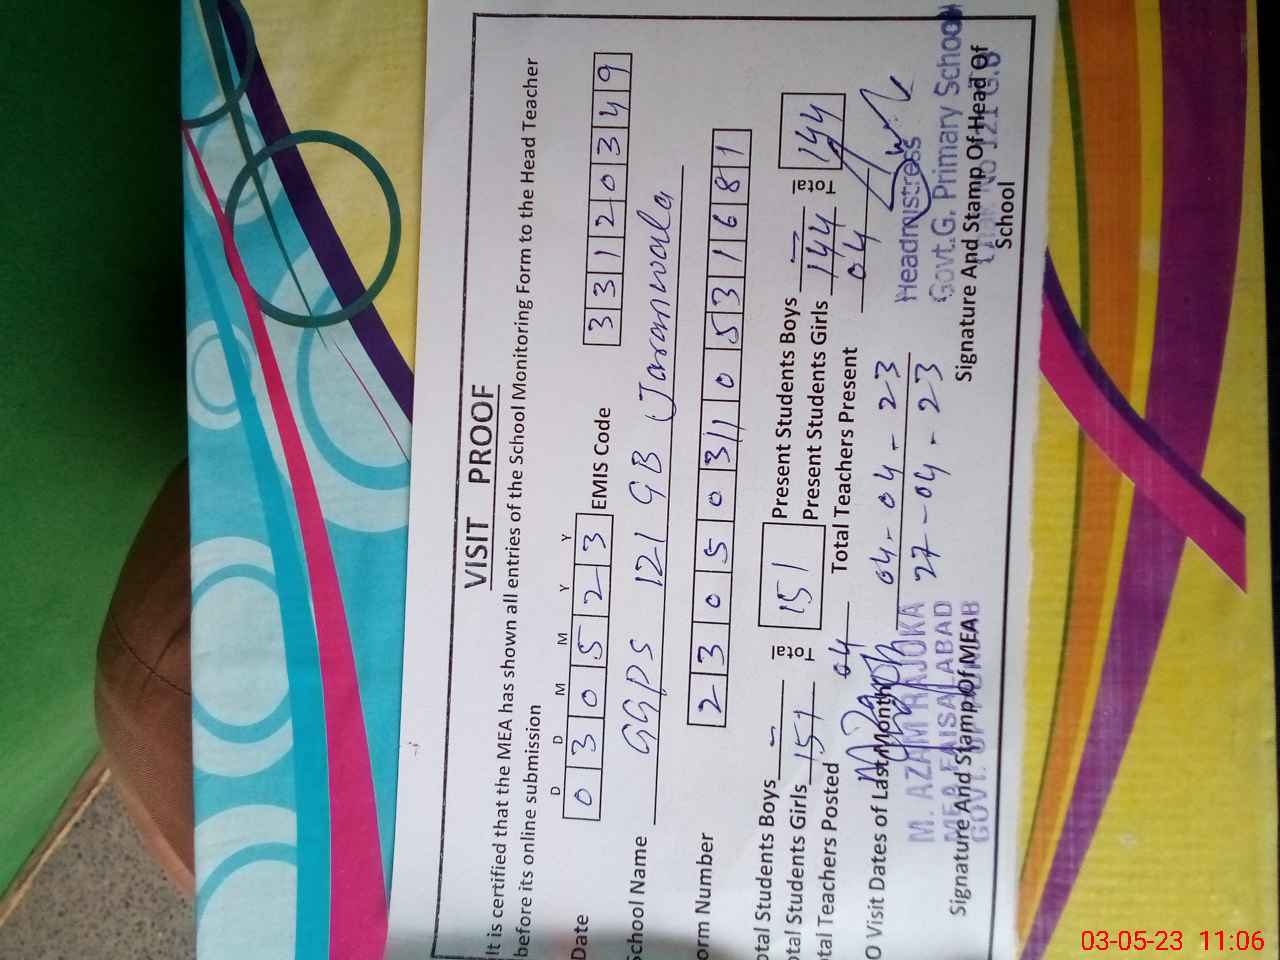 VISIT PROOF
It is certified that the MEA has shown all entries of the School Monitoring Form to the Head Teacher
before its online submission
D D M M Y Y
Date 0 3 0 5 2 3 EMIS Code 3 3 1 2 0 3 4 9
School Name GGPS 121 GB Jaranwala
orm Number 2 3 0 5 0 3 1 1 0 5 3 1 6 8 1
otal Students Boys — Total 151 Present Students Boys — Total 144
otal Students Girls 151 Present Students Girls 144
otal Teachers Posted 04 Total Teachers Present 04
O Visit Dates of Last Month 04-04-23
27-04-23
M. AZAM RAJOKA
MEA FAISALABAD
Headmistress
Govt.G. Primary School
Signature And Stamp Of MEA
Signature And Stamp Of Head Of
School
03-05-23 11:06